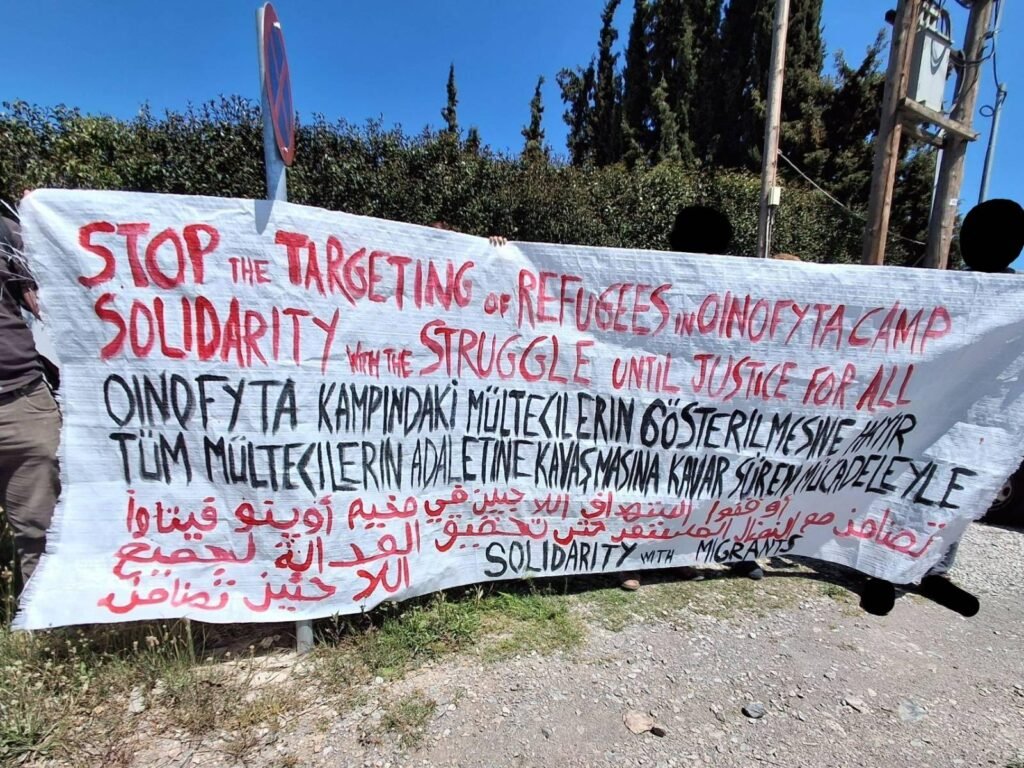 STOP THE TARGETING OF REFUGEES IN OINOFYTA CAMP
SOLIDARITY WITH THE STRUGGLE UNTIL JUSTICE FOR ALL
OINOFYTA KAMPINDAKİ MÜLTECİLERİN GÖSTERİLMESINE HAYIR
TÜM MÜLTECİLERİN ADALETINE KAVAŞMASINA KAVAR SÜREN MÜCADELEYLE
أوقفوا اللاجئين في مخيم أوينو
تضامن مع النضال حتى تحقيق لجميع
اللاجئين تضامن
SOLIDARITY WITH MIGRANTS